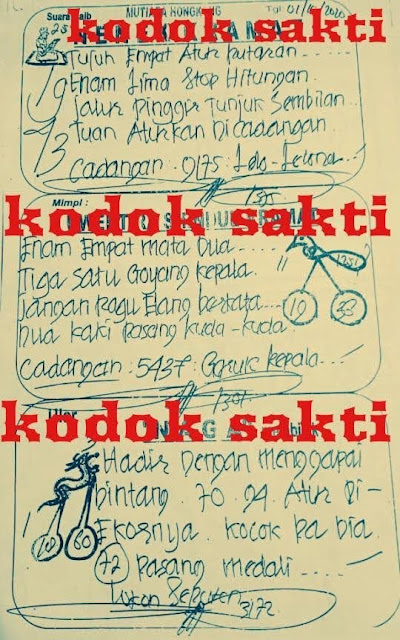 Suara Gaib
MUTIARA HONGKONG
Tgl 01/10/2020
kodok sakti
Tujuh Empat Atur putaran ......
Enam Lima Stop Hitungan
Jalur Pinggir Tunjuk Sembilan
Tuan Aturkan Dicadangan
Cadangan : 9175 :
Mimpi :
kodok sakti
Enam Empat mata Dua ....
Tiga satu Goyang kepala
Jangan Ragu Elang berkata ....
Dua kaki pasang kuda-kuda
19 33
Cadangan : 5437 : Garuk kepala ...
kodok sakti
Hadir Dengan menggapai
bintang . 70 . 94 . Atur Di-
Ekornya . kocok
72 pasang medali ....
3172